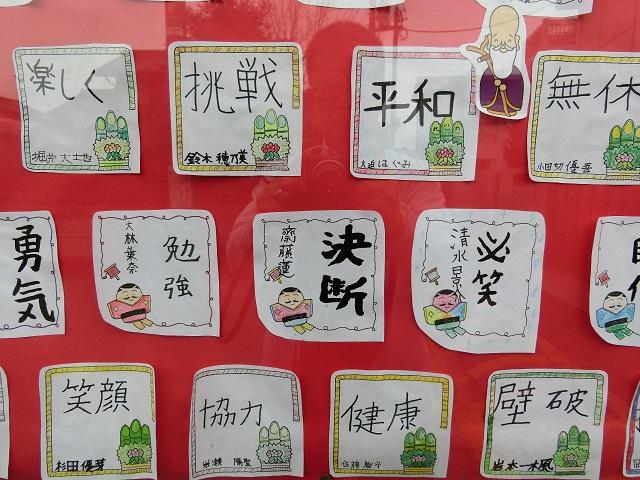 楽しく
堀井大地
挑戦
鈴木穂瑛
平和
大迫はぐみ
無休
小田切優吾
勇気
勉強
大林菜奈
決断
齋藤蓮
必笑
清水景
笑顔
杉田優芽
協力
岩瀬
健康
佐藤
壁破
岩本一楓